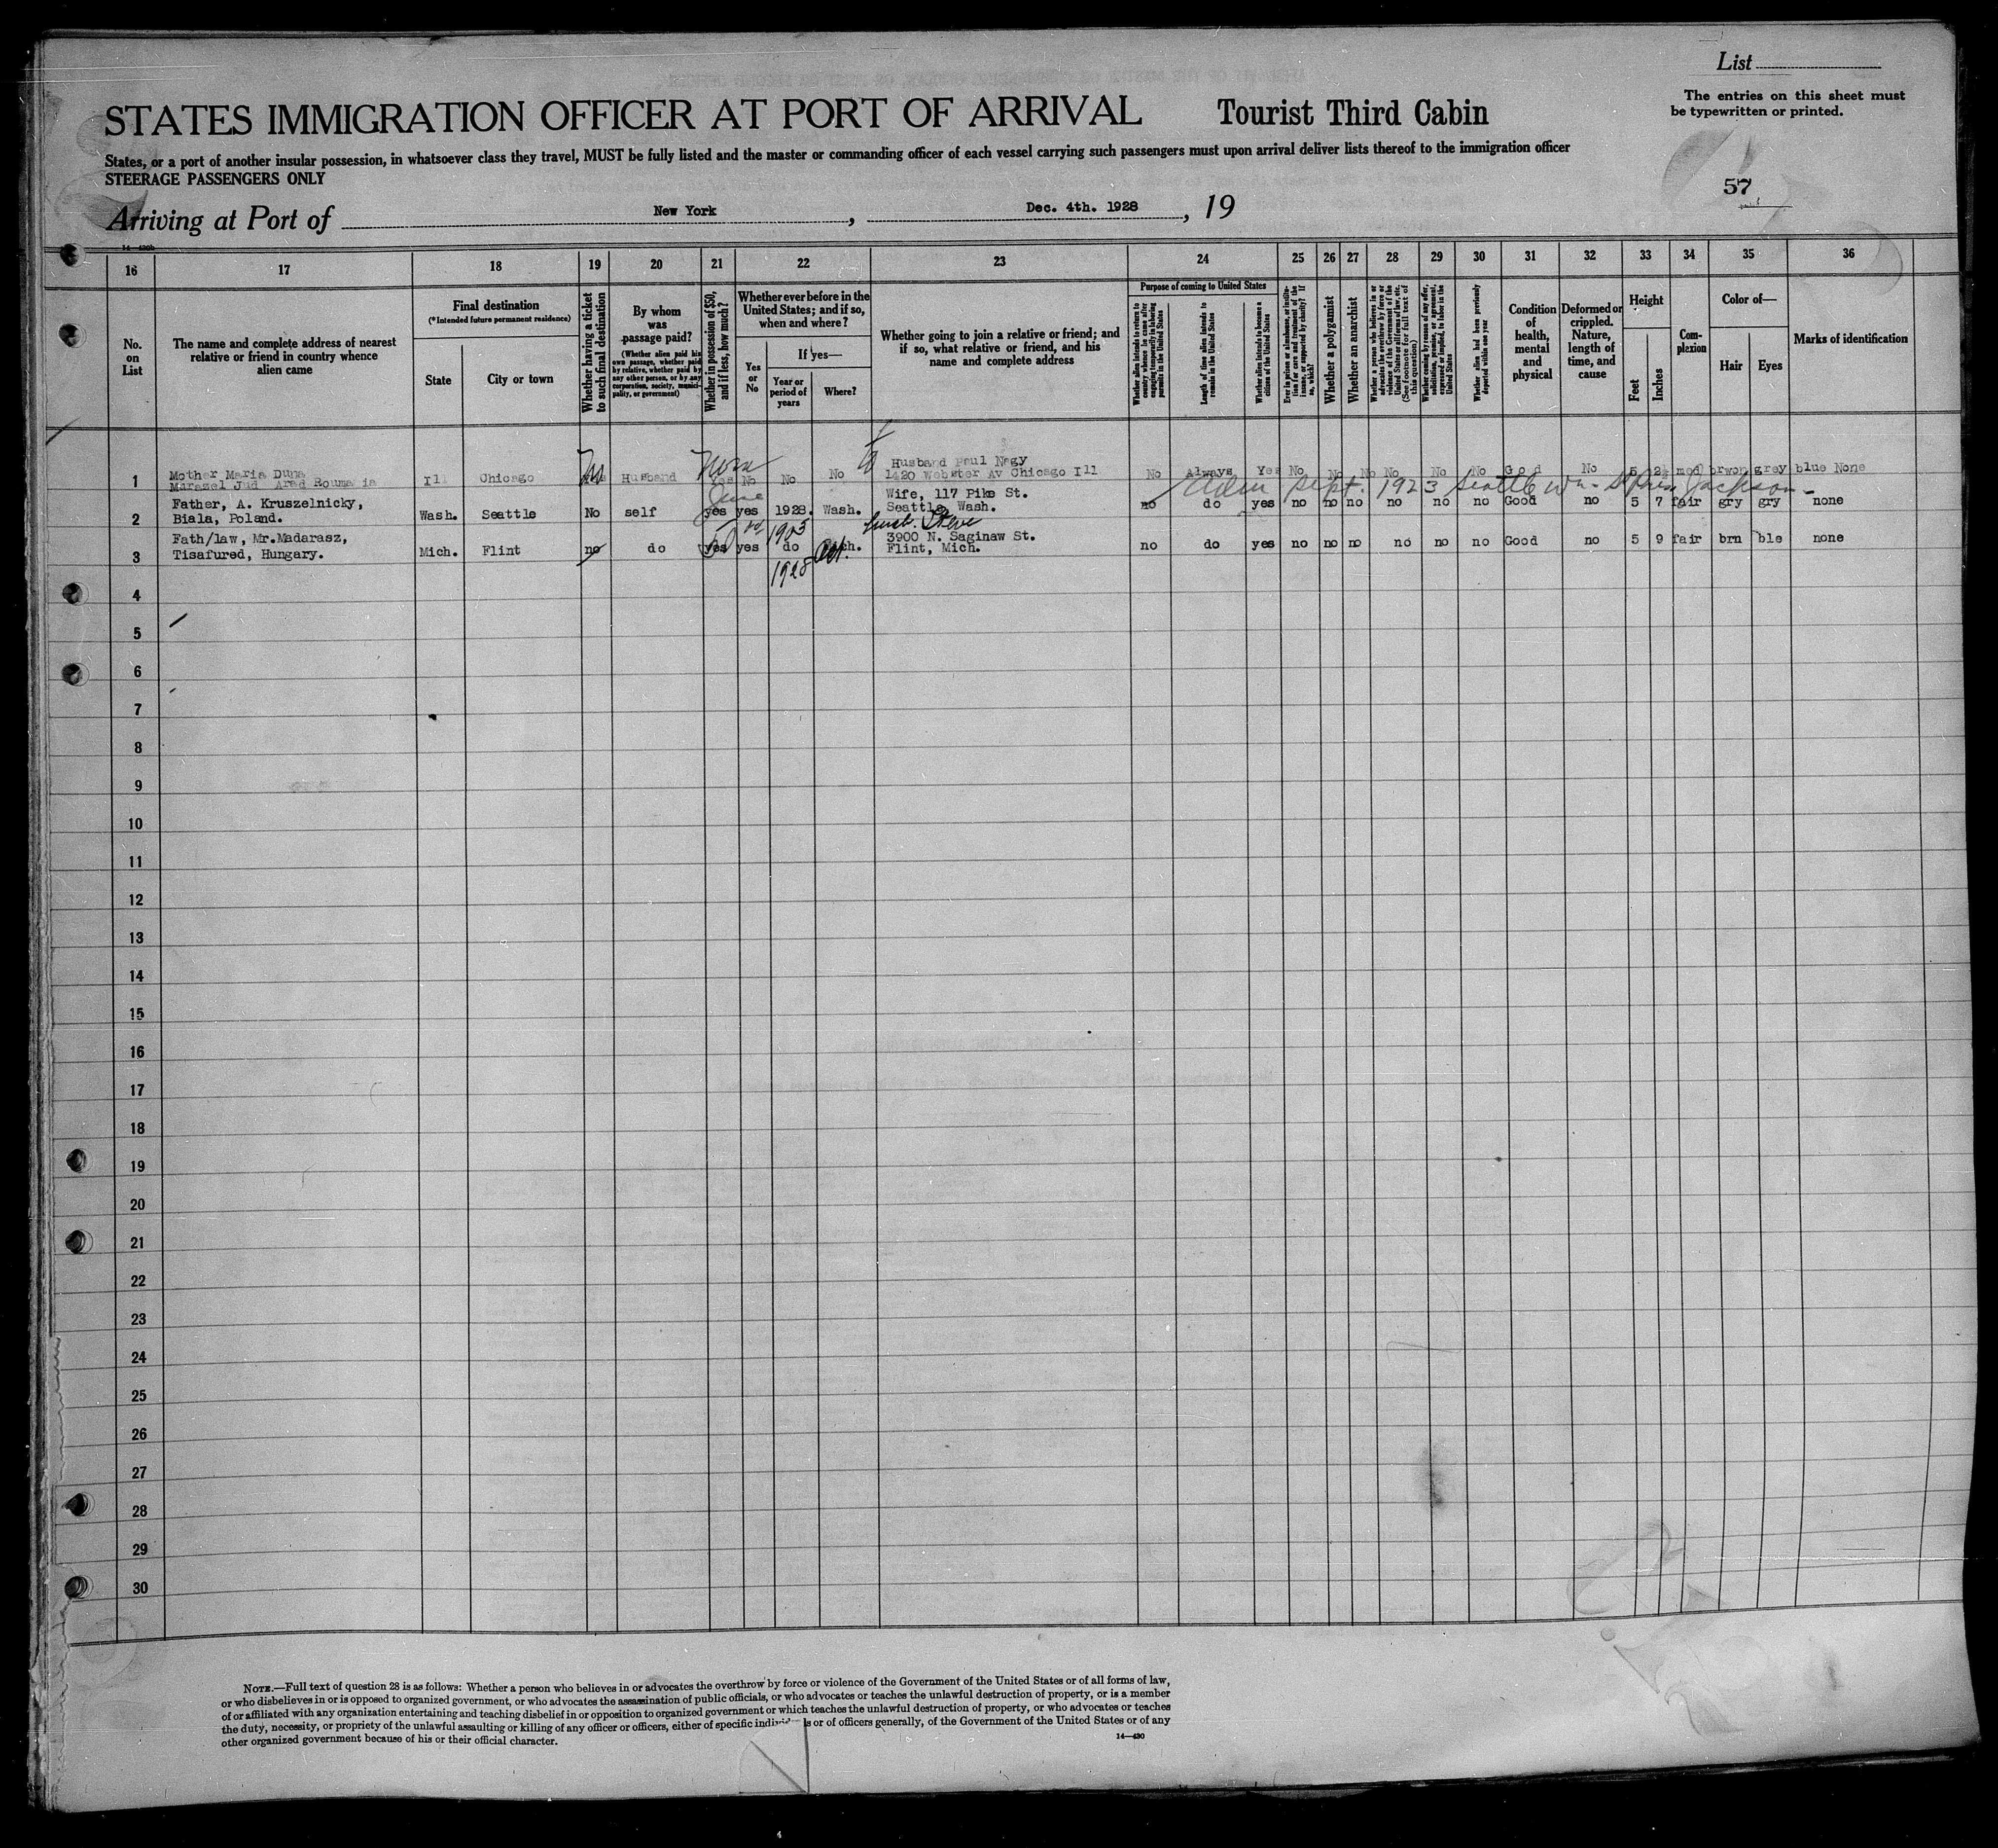 List
The entries on this sheet must
be typewritten or printed.
STATES IMMIGRATION OFFICER AT PORT OF ARRIVAL Tourist Third Cabin
States, or a port of another insular possession, in whatsoever class they travel, MUST be fully listed and the master or commanding officer of each vessel carrying such passengers must upon arrival deliver lists thereof to the immigration officer
STEERAGE PASSENGERS ONLY
57
Arriving at Port of New York, Dec. 4th. 1928, 19
16 17 18 19 20 21 22 23 24 25 26 27 28 29 30 31 32 33 34 35 36
No.
on
List
The name and complete address of nearest
relative or friend in country whence
alien came
Final destination
(*Intended future permanent residence)
State
City or town
Whether having a ticket
to such final destination
By whom
was
passage paid?
(Whether alien paid his
own passage, whether paid
by relative, whether paid by
any other person, or by any
corporation, society, munici-
pality, or government)
Whether in possession of $50,
and if less, how much?
Whether ever before in the
United States; and if so,
when and where?
Yes
or
No
If yes—
Year or
period of
years
Where?
Whether going to join a relative or friend; and
if so, what relative or friend, and his
name and complete address
Purpose of coming to United States
Whether alien intends to return to
country whence he came after
engaging temporarily in laboring
pursuits in the United States
Length of time alien intends to
remain in the United States
Whether alien intends to become a
citizen of the United States
Ever in prison or almshouse, or institu-
tion for care and treatment of the
insane, or supported by charity? If
so, which?
Whether a polygamist
Whether an anarchist
Whether a person who believes in or
advocates the overthrow by force or
violence of the Government of the
United States or all forms of law, etc.
(See footnote for full text of
this question)
Whether coming by reason of any offer,
solicitation, promise, or agreement,
expressed or implied, to labor in the
United States
Whether alien had been previously
deported within one year
Condition
of
health,
mental
and
physical
Deformed or
crippled.
Nature,
length of
time, and
cause
Height
Feet
Inches
Com-
plexion
Color of—
Hair
Eyes
Marks of identification
Husband Paul Nagy
Mother Maria Duma
1 Murazel Jud Arad Roumania Ill Chicago Husband Yes No No No 1420 Webster Av Chicago Ill No Always Yes No No No No No No Good No 5 2½ med brwon grey blue None
June
Sept. 1923 Seattle Wn - Jackson -
Father, A. Kruszelnicky, Wife, 117 Pike St.
2 Biala, Poland. Wash. Seattle No self yes yes 1928. Wash. Seattle, Wash. no do yes no no no no no no Good no 5 7 fair gry gry none
50 1903 Steve
Fath/law, Mr.Madarasz, 3900 N. Saginaw St.
3 Tisafured, Hungary. Mich. Flint no do yes yes do Flint, Mich. no do yes no no no no no no Good no 5 9 fair brn ble none
1928
4
5
6
7
8
9
10
11
12
13
14
15
16
17
18
19
20
21
22
23
24
25
26
27
28
29
30
NOTE.—Full text of question 28 is as follows: Whether a person who believes in or advocates the overthrow by force or violence of the Government of the United States or of all forms of law,
or who disbelieves in or is opposed to organized government, or who advocates the assassination of public officials, or who advocates or teaches the unlawful destruction of property, or is a member
of or affiliated with any organization entertaining and teaching disbelief in or opposition to organized government or which teaches the unlawful destruction of property, or who advocates or teaches
the duty, necessity, or propriety of the unlawful assaulting or killing of any officer or officers, either of specific individuals or of officers generally, of the Government of the United States or of any
other organized government because of his or their official character.
14—430